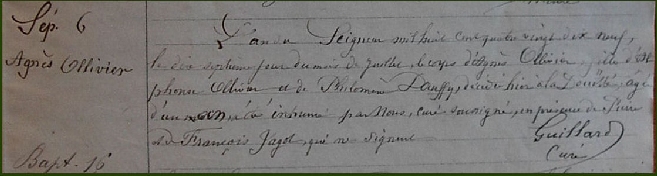 Sép. 6
Agnès Ollivier
L'an du Seigneur mil huit cent quatre vingt dix neuf,
le dix septième jour du mois de juillet le corps d'Agnès Ollivier, fille d'Al
phonse Ollivier et de Philomène Dauffy, décédé hier à la Louette, âgé
d'un mois a été inhumé par Nous, curé soussigné, en présence de Pierre
et de François Jagot, qui ne signent
Guillard
Curé
Bapt. 16